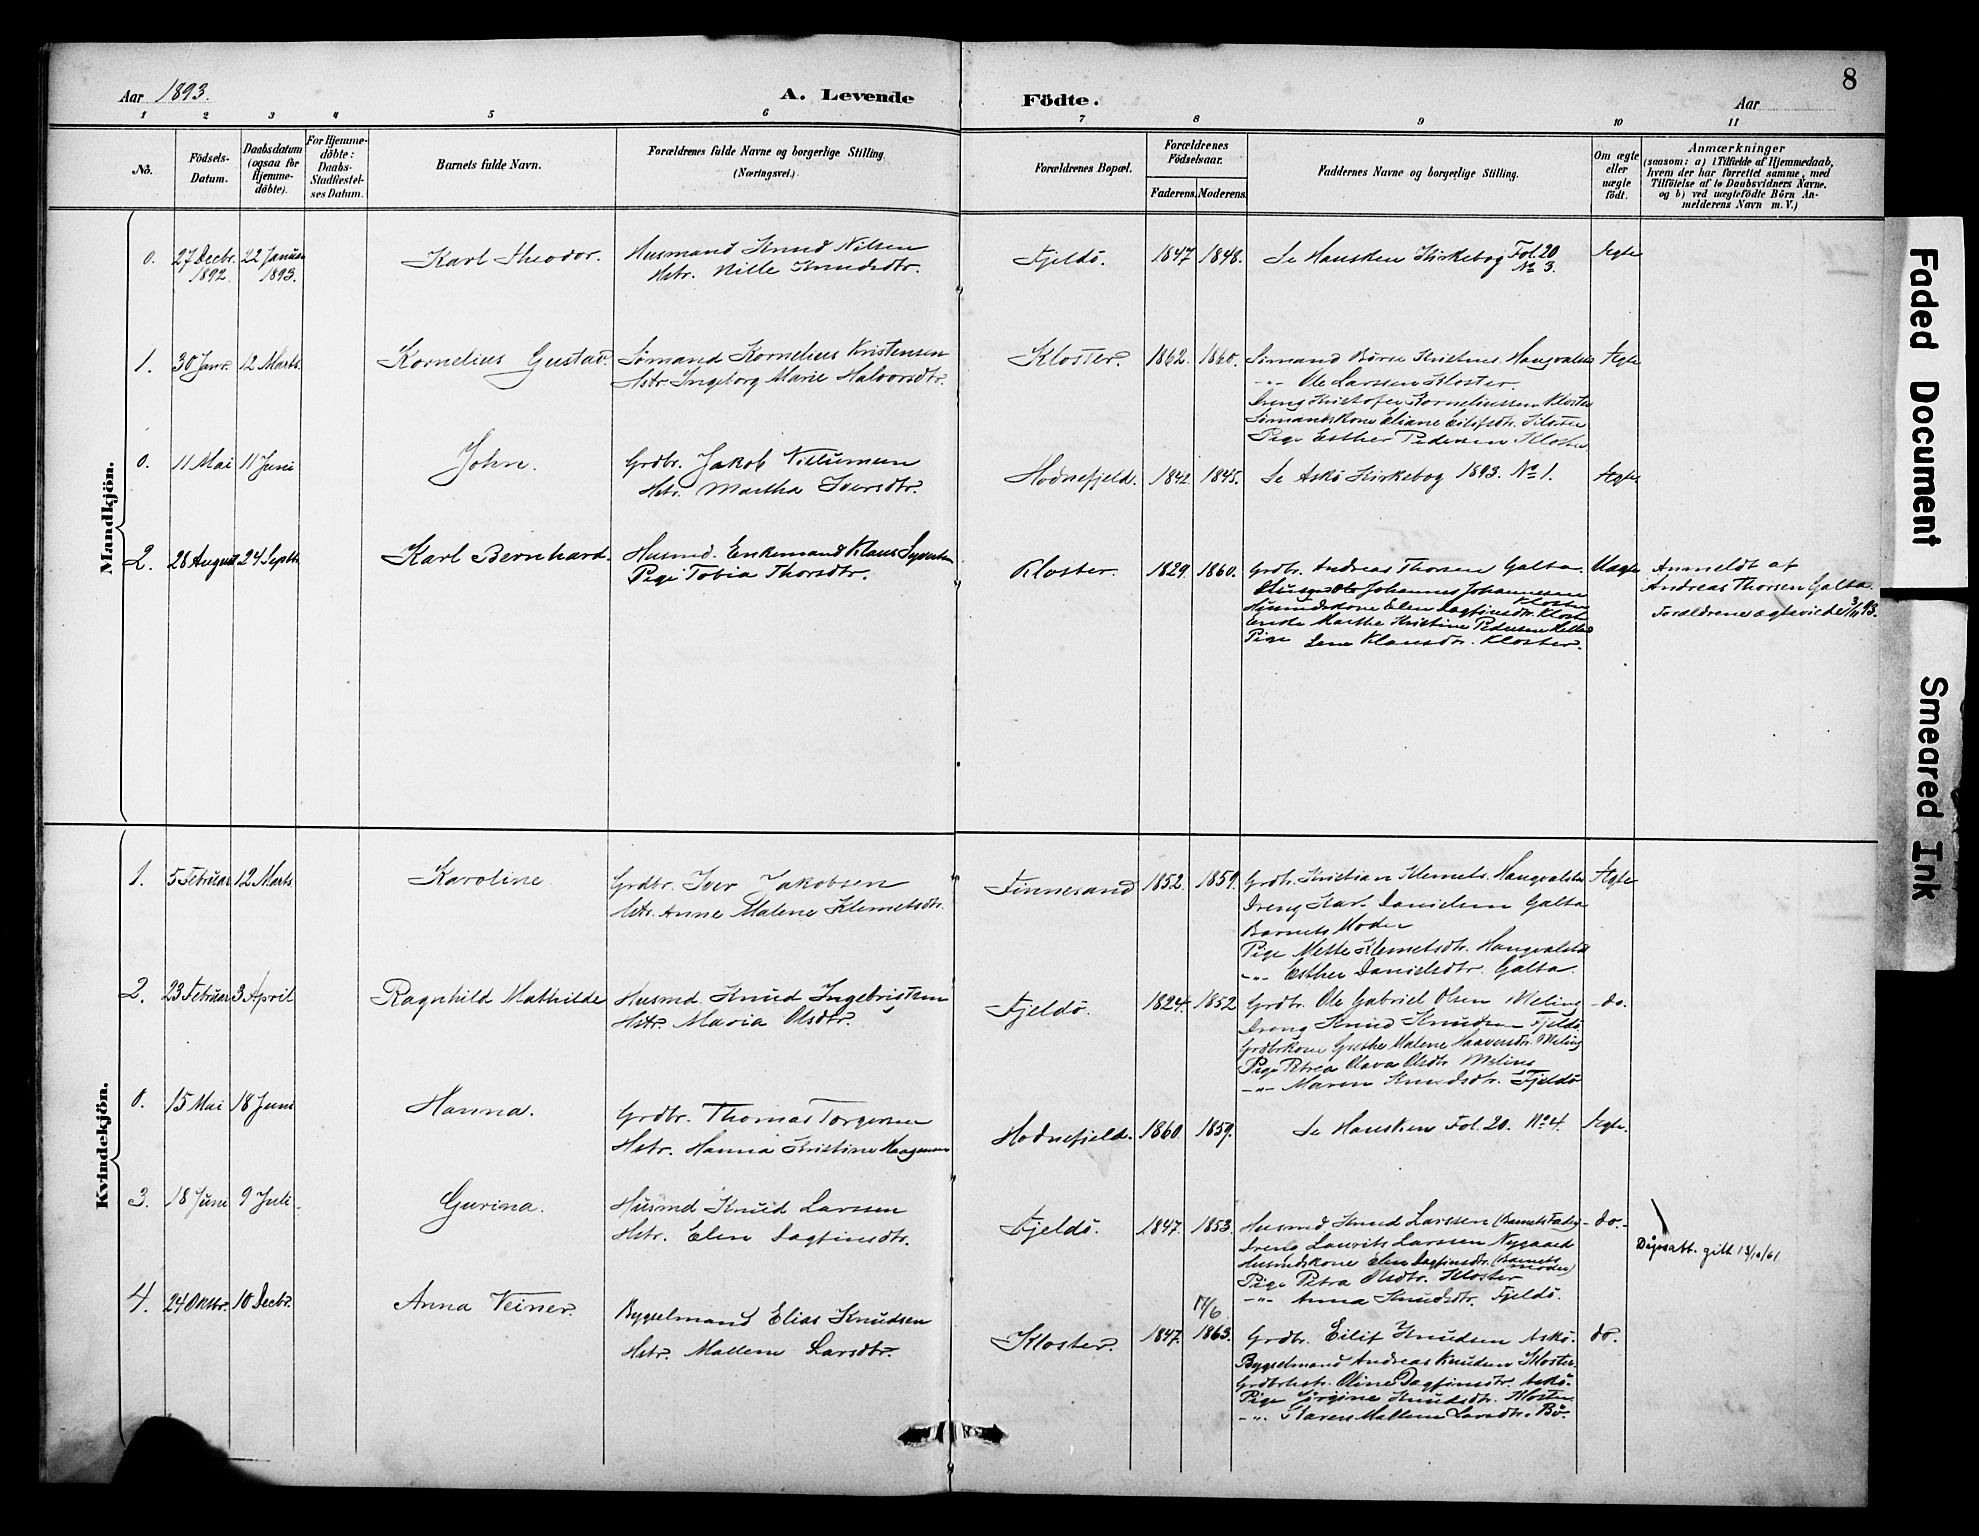 Aar 1893.
A. Levende
Födte.
Aar
8
1 2 3 4 5 6 7 8 9 10 11
No.
Födsels-
Datum.
Daabsdatum
(ogsaa for
Hjemme-
döbte).
For Hjemme-
döbte:
Daabs-
Stadfæstel-
ses Datum.
Barnets fulde Navn.
Forældrenes fulde Navne og borgerlige Stilling
(Næringsvei.)
Forældrenes Bopæl.
Forældrenes
Födselsaar.
Faderens. Moderens.
Faddernes Navne og borgerlige Stilling.
Om ægte
eller
uægte
födt.
Anmærkninger
(saasom: a) i Tilfælde af Hjemmedaab,
hvem der har forrettet samme, med
Tilföielse af to Daabsvidners Navne.
og b) ved uægtefödte Börn An-
melderens Navn m. V.)
Mandkjön.
0. 27 Decbr. 1892. 22 Januar 1893. Karl Theodor.
Husmand Knud Nilsen
Hstr. Nille Knudsdtr.
Fjeldö. 1847 1848. Se Hausken Kirkebog Fol. 20 No 3. Ægte
1. 30 Janr. 12 Marts. Kornelius Gustav.
Sømand Kornelius Kristensen
Hstr Ingeborg Marie Halvorsdtr.
Kloster. 1862. 1860. Sömand Börre Kristens. Haugvalstad Ægte
-"- Ole Larssen Kloster.
Dreng Kristofer Korneliussen Kloster
Sømandskone Eliane Eilifsdtr. Kloster
Pige Esther Pedersen Kloster
0. 11 Mai 11 Juni John.
Grdbr. Jakob Villumsen
Hstr. Martha Iversdtr.
Hodnefjeld. 1842. 1845. Se Askö Kirkebog 1893. No 1. Ægte
2. 28 August 24 Septb. Karl Bernhard.
Husmd. Enkemand Klaus Syvertsen
Pige Tobia Thorsdtr.
Kloster. 1829. 1860. Grdbr. Andreas Thorsen Galta. Uægte
Johannes Johannesen Kloster
Husmdskone Elen Dagfinsdtr. Kloster
Martha Kristine Pedersen
Pige Lene Klausdtr. Kloster.
Anmeldt af
Andreas Thorsen Galta.
Forældrene ægteviede 3/11 93.
Kvindekjön.
1. 5 Februar 12 Marts Karoline
Grdbr. Iver Jakobsen
Hstr. Anne Malene Klemetsdtr.
Finnesand 1852. 1859. Grdbr. Kristian Klemets. Haugvalstad Ægte
Dreng Karl Danielsen Galta
Barnets Moder
Pige Mette Klemetsdtr. Haugvalstad
-"- Esther Danielsdtr. Galta.
2. 23 Februar 3 April Ragnhild Mathilde
Husmd. Knud Ingebrigtsen
Hstr. Maria Olsdtr.
Fjeldö. 1824. 1852 Grdbr. Ole Gabriel Olsen Meling - do.
Dreng Knud Knudsen Fjeldö
Grdbrkone Grethe Malene Haaversdtr. Meling
Pige Petrea Olava Olsdtr. Meling
-"- Maren Knudsdtr. Fjeldö
0. 15 Mai 18 Juni Hanna.
Grdbr. Thomas Torgersen
Hstr. Hanna Kristine Haagensen
Hodnefjeld. 1860. 1859. Se Hausken Fol. 20. No 4. Ægte.
3. 18 Juni 9 Juli. Gurina.
Husmd Knud Larssen
Hstr. Elen Dagfinsdtr.
Fjeldö. 1847. 1853. Husmd Knud Larssen (Barnets Fader) - do. -
Dreng Laurits Larssen Nygaard
Husmdskone Elen Dagfinsdtr. (Barnets Moder)
Pige Petra Olsdtr. Kloster
-"- Anna Knudsdtr. Fjeldö.
Dåpsatt. gitt 13/10/61
4. 24 Oktbr. 10 Decbr. Anna Veiner.
Bygselmand Elias Knudsen
Hstr. Mallene Larsdtr.
Kloster. 1847. 17/6 1863. Grdbr. Eilif Knudsen Askö. do.
Bygselmand Andreas Knudsen Kloster.
Grdbrhstr. Oline Dagfinsdtr. Askö.
Pige Sörine Knudsdtr. Kloster
-"- Karen Mallene Larsdtr. Bö.
Faded Document
Smeared Ink